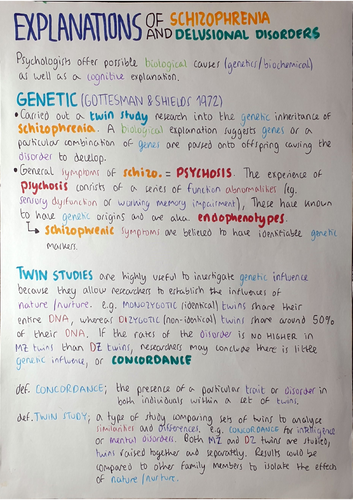 EXPLANATIONS OF SCHIZOPHRENIA
AND DELUSIONAL DISORDERS
Psychologists offer possible biological causes (genetics/biochemical)
as well as a cognitive explanation.
GENETIC (GOTTESMAN & SHIELDS 1972)
• Carried out a twin study research into the genetic inheritance of
schizophrenia. A biological explanation suggests genes or a
particular combination of genes are passed onto offspring causing the
disorder to develop.
• General symptoms of schizo. = PSYCHOSIS. The experience of
psychosis consists of a series of function abnormalities (eg.
sensory dysfunction or working memory impairment), These have known
to have genetic origins and are aka. endophenotypes.
↳ schizophrenic symptoms are believed to have identifiable genetic
markers.
TWIN STUDIES are highly useful to investigate genetic influence
because they allow researchers to establish the influences of
nature/nurture. e.g. MONOZYGOTIC (identical) twins share their
entire DNA, whereas DIZYGOTIC (non-identical) twins share around 50%
of their DNA. If the rates of the disorder is NO HIGHER IN
MZ twins than DZ twins, researchers may conclude there is little
genetic influence, or CONCORDANCE
def. CONCORDANCE; the presence of a particular trait or disorder in
both individuals within a set of twins.
def. TWIN STUDY; a type of study comparing sets of twins to analyse
similarities and differences, e.g. CONCORDANCE for intelligence
or mental disorders. Both MZ and DZ twins are studied;
twins raised together and separately. Results could be
compared to other family members to isolate the effects
of nature/nurture.